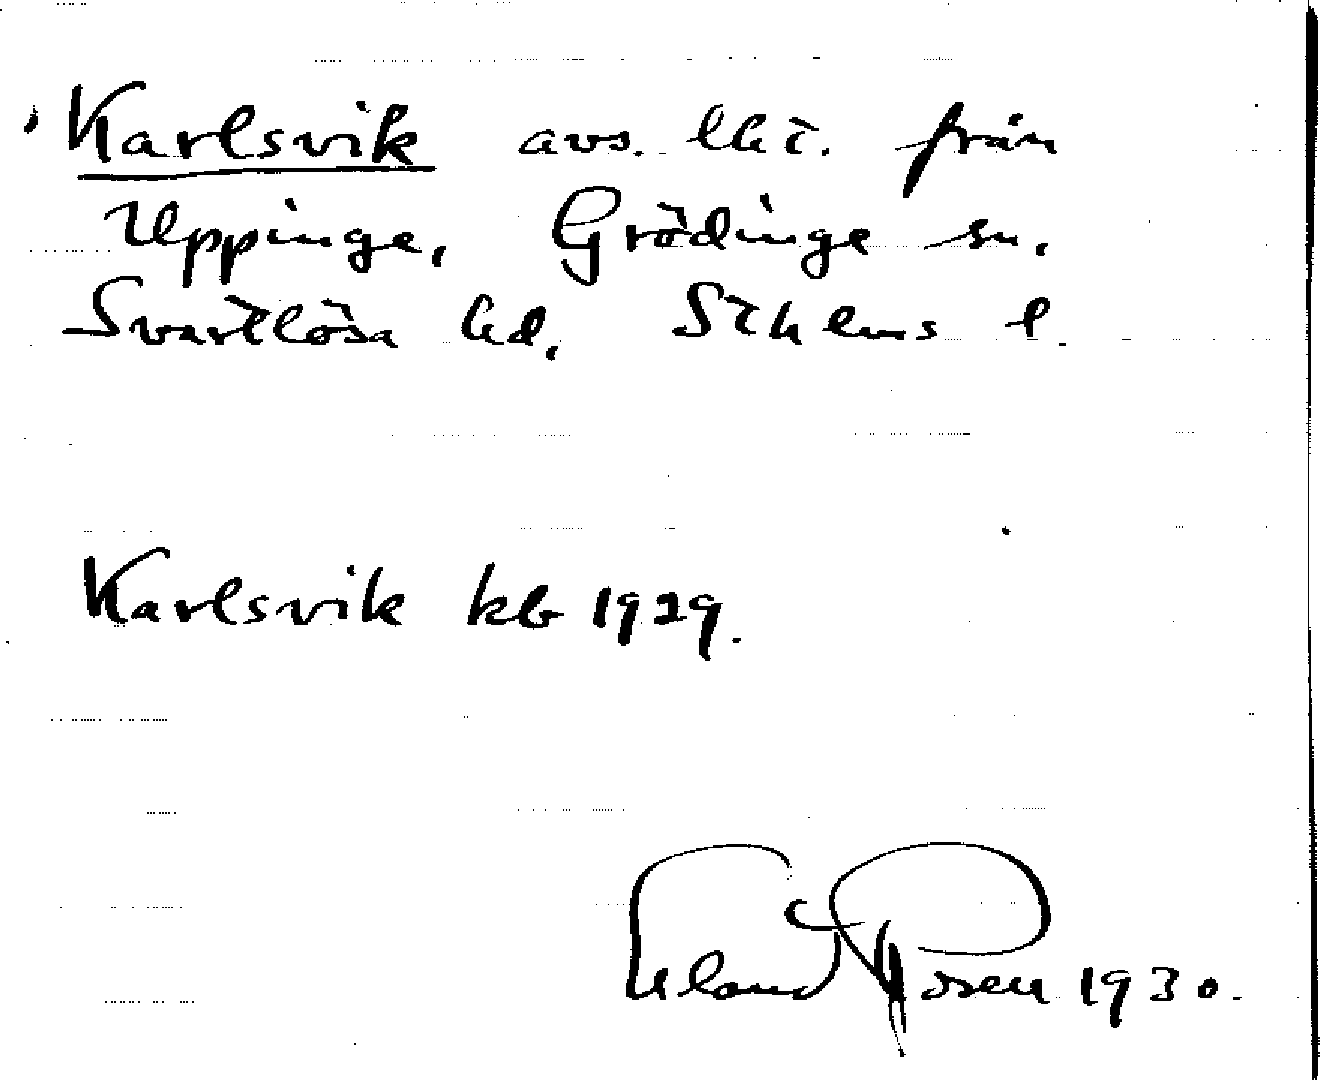 Karlsvik avs. lht. från
Uppinge, Grödinge sn.
Svartlösa hd. Sthlms l.
Karlsvik kb 1929.
Erland Rosen 1930.